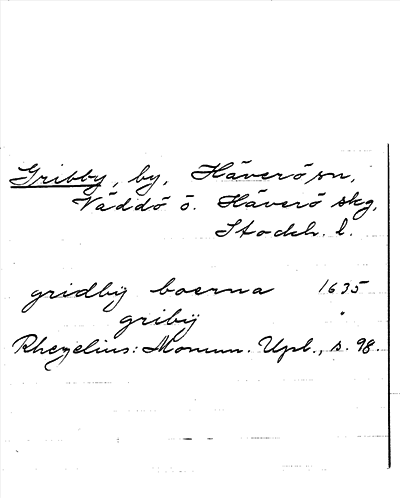 Gribby, by, Häverö sn,
Väddö ö. Häverö skg,
Stockh. l.
gridby boerna 1635
griby "
Rhezelius: Monum. Upl., s. 98.